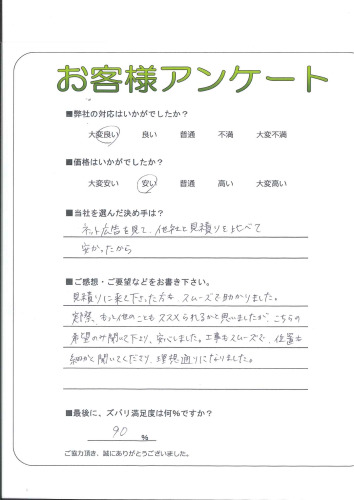 お客様アンケート
■弊社の対応はいかがでしたか？
大変良い 良い 普通 不満 大変不満
■価格はいかがでしたか？
大変安い 安い 普通 高い 大変高い
■当社を選んだ決め手は？
ネット広告を見て、他社と見積りを比べて
安かったから
■ご感想・ご要望などをお書き下さい。
見積りに来て下さった方も、スムーズで助かりました。
実際、もっと他のこともススメられるかと思いましたが、こちらの
希望のみ聞いて下さり、安心しました。工事もスムーズで、位置も
細かく聞いてくださり、理想通りになりました。
■最後に、ズバリ満足度は何％ですか？
90 %
ご協力頂き、誠にありがとうございました。